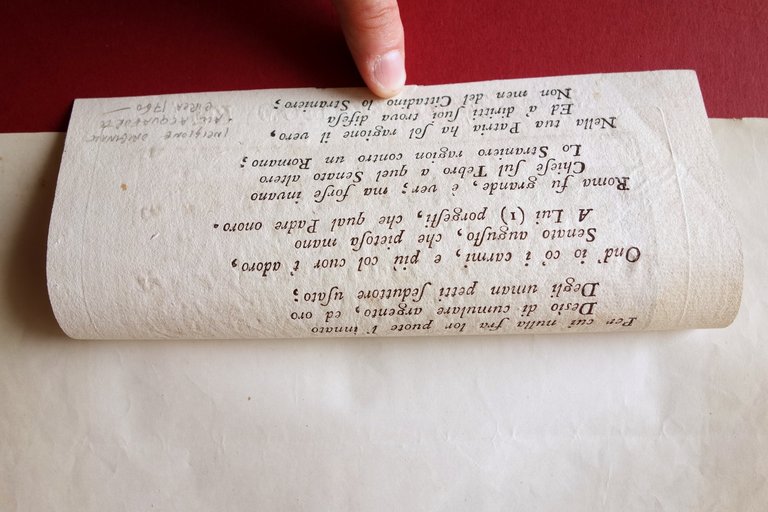 Per cui nulla fra lor puote l' innato
Deſio di cumulare argento, ed oro
Degli uman petti ſeduttore uſato;
Ond' io co' i carmi, e più col cuor t' adoro,
Senato auguſto, che pietoſa mano
A Lui (1) porgeſti, che qual Padre onoro.
Roma fu grande, è ver; ma forſe invano
Chieſe ſul Tebro a quel Senato altero
Lo Straniero ragion contro un Romano;
Nella tua Patria ha ſol ragione il vero,
Ed a' diritti ſuoi trova difeſa
Non men del Cittadino lo Straniero;
INCISIONE ORIGINALE
ALL'ACQUAFORTE
CIRCA 1760